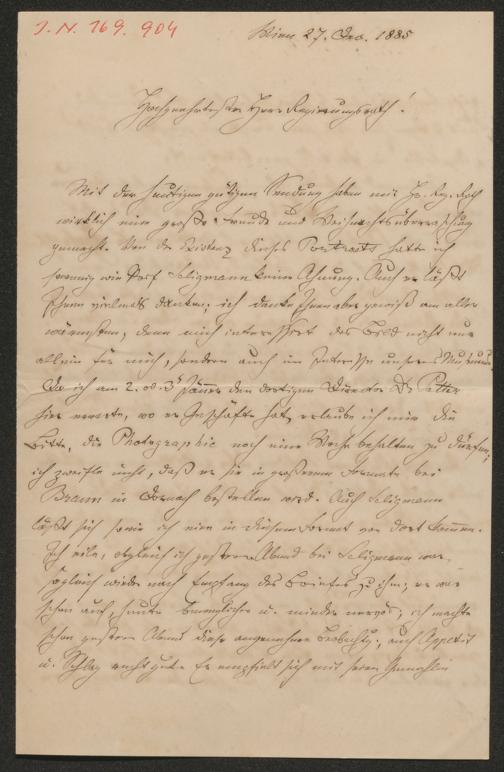 J. N. 169.904
Wien 27. Dec. 1885
Hochgeehrtester Herr Regierungsrath!
Mit der heutigen gütigen Sendung haben mir Hr. Reg. Rath
wirklich eine große Freude und Weihnachtsüberraschung
gemacht. Von der Existenz dieses Portraits hatte ich
so wenig wie Prof. Seligmann keine Ahnung. Auch er läßt
Ihnen vielmals danken; ich danke Ihnen aber gewiß am aller
wärmsten, denn mich interessirt das Bild nicht nur
allein für mich, sondern auch im Interesse unseres Museums.
Da ich am 2. od. 3. Jänner den dortigen Director Dr.
hier erwarte, wo er Geschäfte hat, erlaube ich mir die
Bitte, die Photographie noch eine Woche behalten zu dürfen;
ich zweifle nicht, daß er sie in größerem Formate bei
Braun in Dornach bestellen wird. Auch Seligmann
läßt sich sowie ich eine in diesem Format von dort kommen.
Ich eile, obgleich ich gestern Abend bei Seligmann war,
sogleich wieder nach Empfang des Briefes zu ihm; er war
schon auf, heute beweglicher u. minder nervös; ich machte
schon gestern Abend diese angenehme Beobachtg., auch Appetit
u. Schlaf recht gut. Er empfielt sich mit seiner Gemahlin